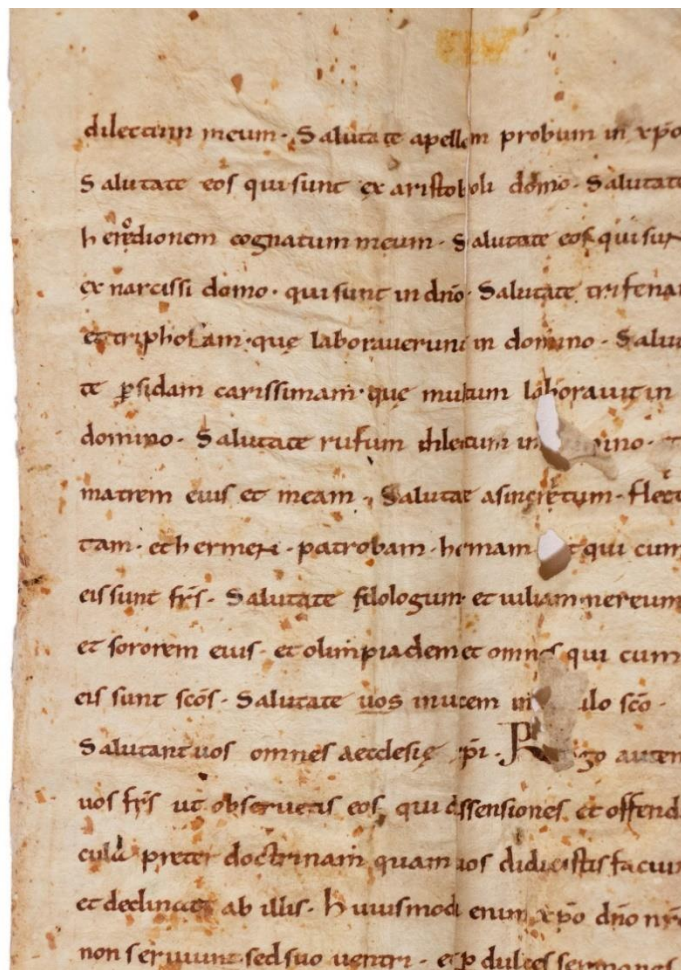 dilectum meum · Salutate apellem probum in xpo
Salutate eos qui sunt ex aristoboli domo · Salutate
herodionem cognatum meum · Salutate eos qui sun
ex narcissi domo · qui sunt in dño · Salutate trifenam
et triphosam · quę laboraverunt in domino · Salu
te psidam carissimam · que multum laboravit in
domino · Salutate rufum dilectum in ino ·
matrem eius et meam · Salutat asincretum · flec
tam · et hermen · patrobam · hermam t qui cum
eis sunt frs̄ · Salutate filologum et iuliam nereum
et sororem eius · et olimpiadem et omnes qui cum
eis sunt scōs · Salutate vos invicem in ulo scō ·
Salutant vos omnes aecclesię xp̄i · go autem
vos frs̄ ut observetis eos qui dissensiones et offend
cula preter doctrinam quam vos didicistis faciun
et declinate ab illis · huiusmodi enim xp̄o dño nr̄o
non serviunt sed suo ventri · et p dulces sermones